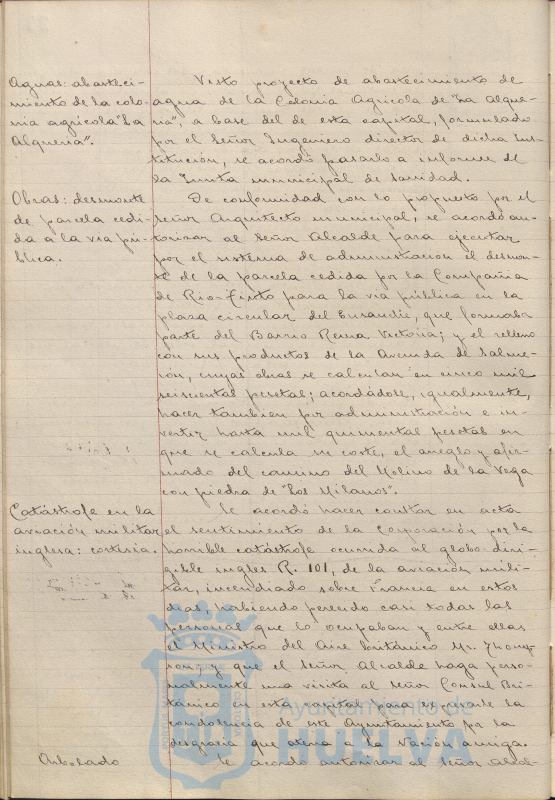 Aguas: abasteci-
miento de la colo-
nia agricola "La
Alqueria".
Visto proyecto de abastecimiento de
agua de la Colonia Agricola de "La Alque-
ria", a base del de esta capital, formulado
por el Señor Ingeniero director de dicha Ins-
titución, se acordó pasarlo a informe de
la Junta municipal de Sanidad.
Obras: desmonte
de parcela cedi-
da a la via pú-
blica.
De conformidad con lo propuesto por el
Señor Arquitecto municipal, se acordó au-
torizar al Señor Alcalde para ejecutar
por el sistema de administracion el desmon-
te de la parcela cedida por la Compañia
de Rio-Tinto para la via pública en la
plaza circular del que formaba
parte del Barrio Reina Victoria; y el relleno
con sus productos de la Avenida de Salme-
rón, cuyas obras se calculan en cinco mil
seiscientas pesetas; acordándose, igualmente,
hacer tambien por administración e in-
vertir hasta mil quinientas pesetas en
que se calcula su coste, el arreglo y afir-
mado del camino del Molino de la Vega
con piedra de "Los Milanos".
Catástrofe en la
aviación militar
inglesa: cortesia.
Se acordó hacer constar en acta
el sentimiento de la Corporación por la
horrible catástrofe ocurrida al globo-diri-
gible inglés R. 101, de la aviación mili-
tar, incendiado sobre Francia en estos
dias, habiendo perecido casi todas las
personas que lo ocupaban y entre ellas
el Ministro del Aire británico Mr. Thomp-
son; y que el Señor Alcalde haga perso-
nalmente una visita al Señor Consul Bri-
tánico en esta capital para expresarle la
condolencia de este Ayuntamiento por la
desgracia que aterra a la Nación amiga.
Arbolado
Se acordo autorizar al Señor Alcal-
Ayuntamiento de
HUELVA